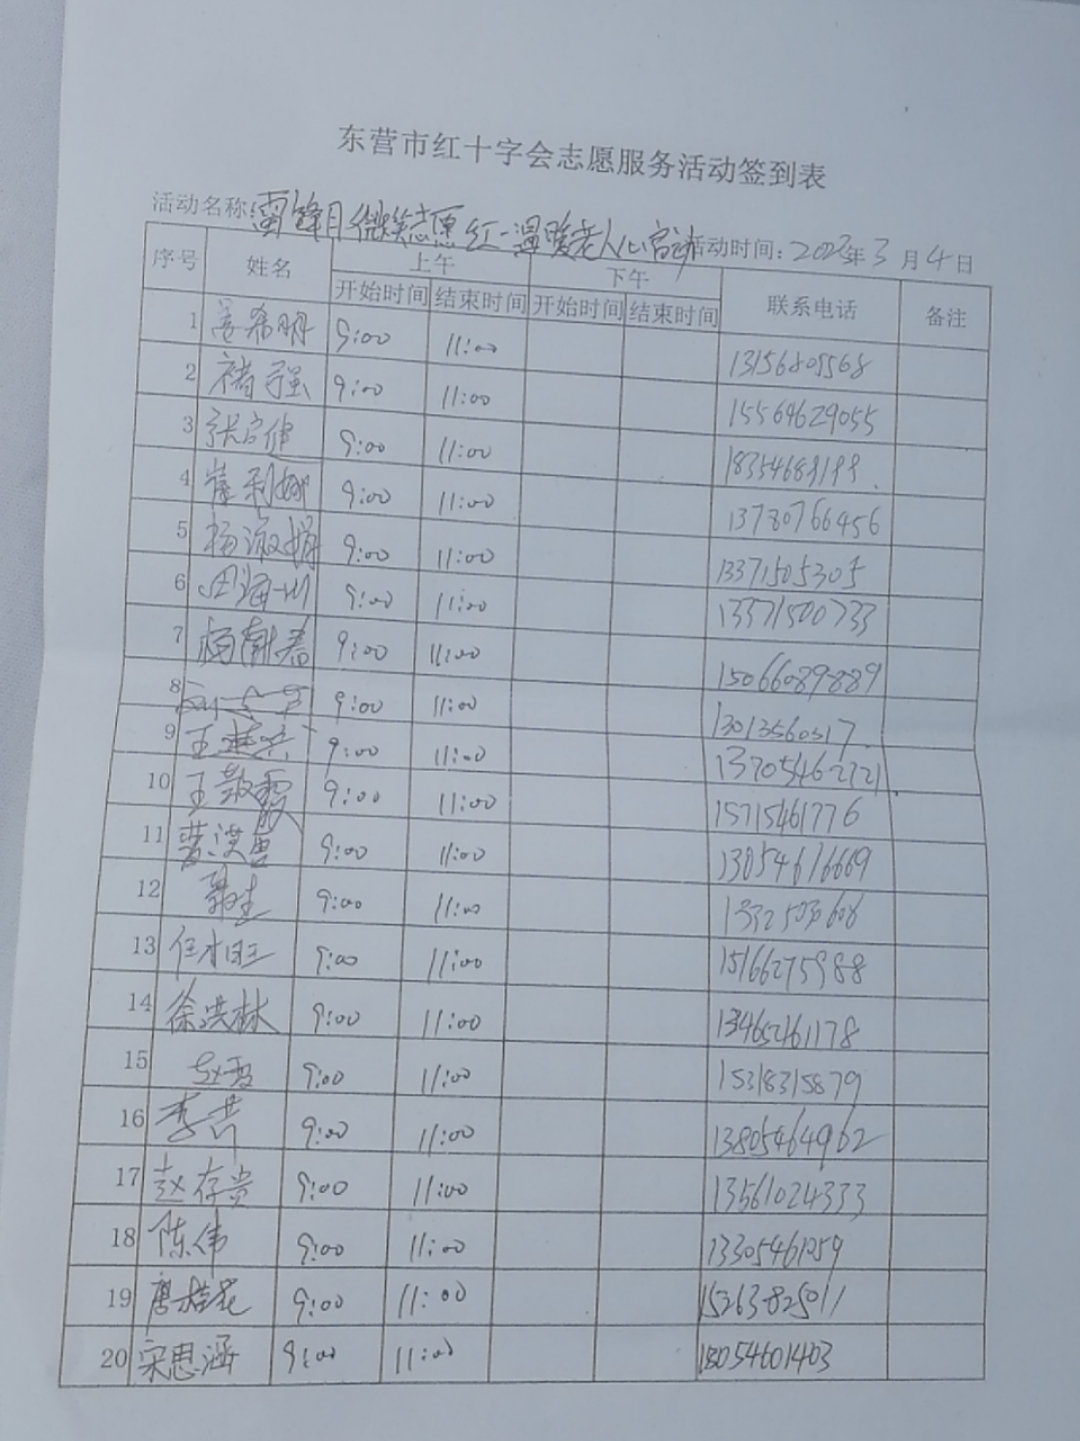 东营市红十字会志愿服务活动签到表
活动名称:雷锋月微笑志愿红-温暖老人心 活动时间: 2023年3月4日
序号 姓名 上午 下午 联系电话 备注
开始时间 结束时间 开始时间 结束时间
1 希明 9:00 11:00 13156805568
2 褚强 9:00 11:00 15564629055
3 9:00 11:00
4 崔利娜 9:00 11:00 13780766456
5 杨淑娟 9:00 11:00 13371505305
6 田海 9:00 11:00 13371500733
7 杨献春 9:00 11:00 15066089889
8 9:00 11:00 13013560517
9 王 9:00 11:00 13705462721
10 王敬 9:00 11:00 15715461776
11 9:00 11:00 13854616669
12 9:00 11:00
13 任水旺 9:00 11:00 15166275988
14 徐洪林 9:00 11:00
15 赵雪 9:00 11:00 15318315879
16 李 9:00 11:00 13805464962
17 赵存贵 9:00 11:00 13561024333
18 陈伟 9:00 11:00 13305461059
19 唐桂花 9:00 11:00 15263825011
20 宋思涵 9:00 11:00 18054601403